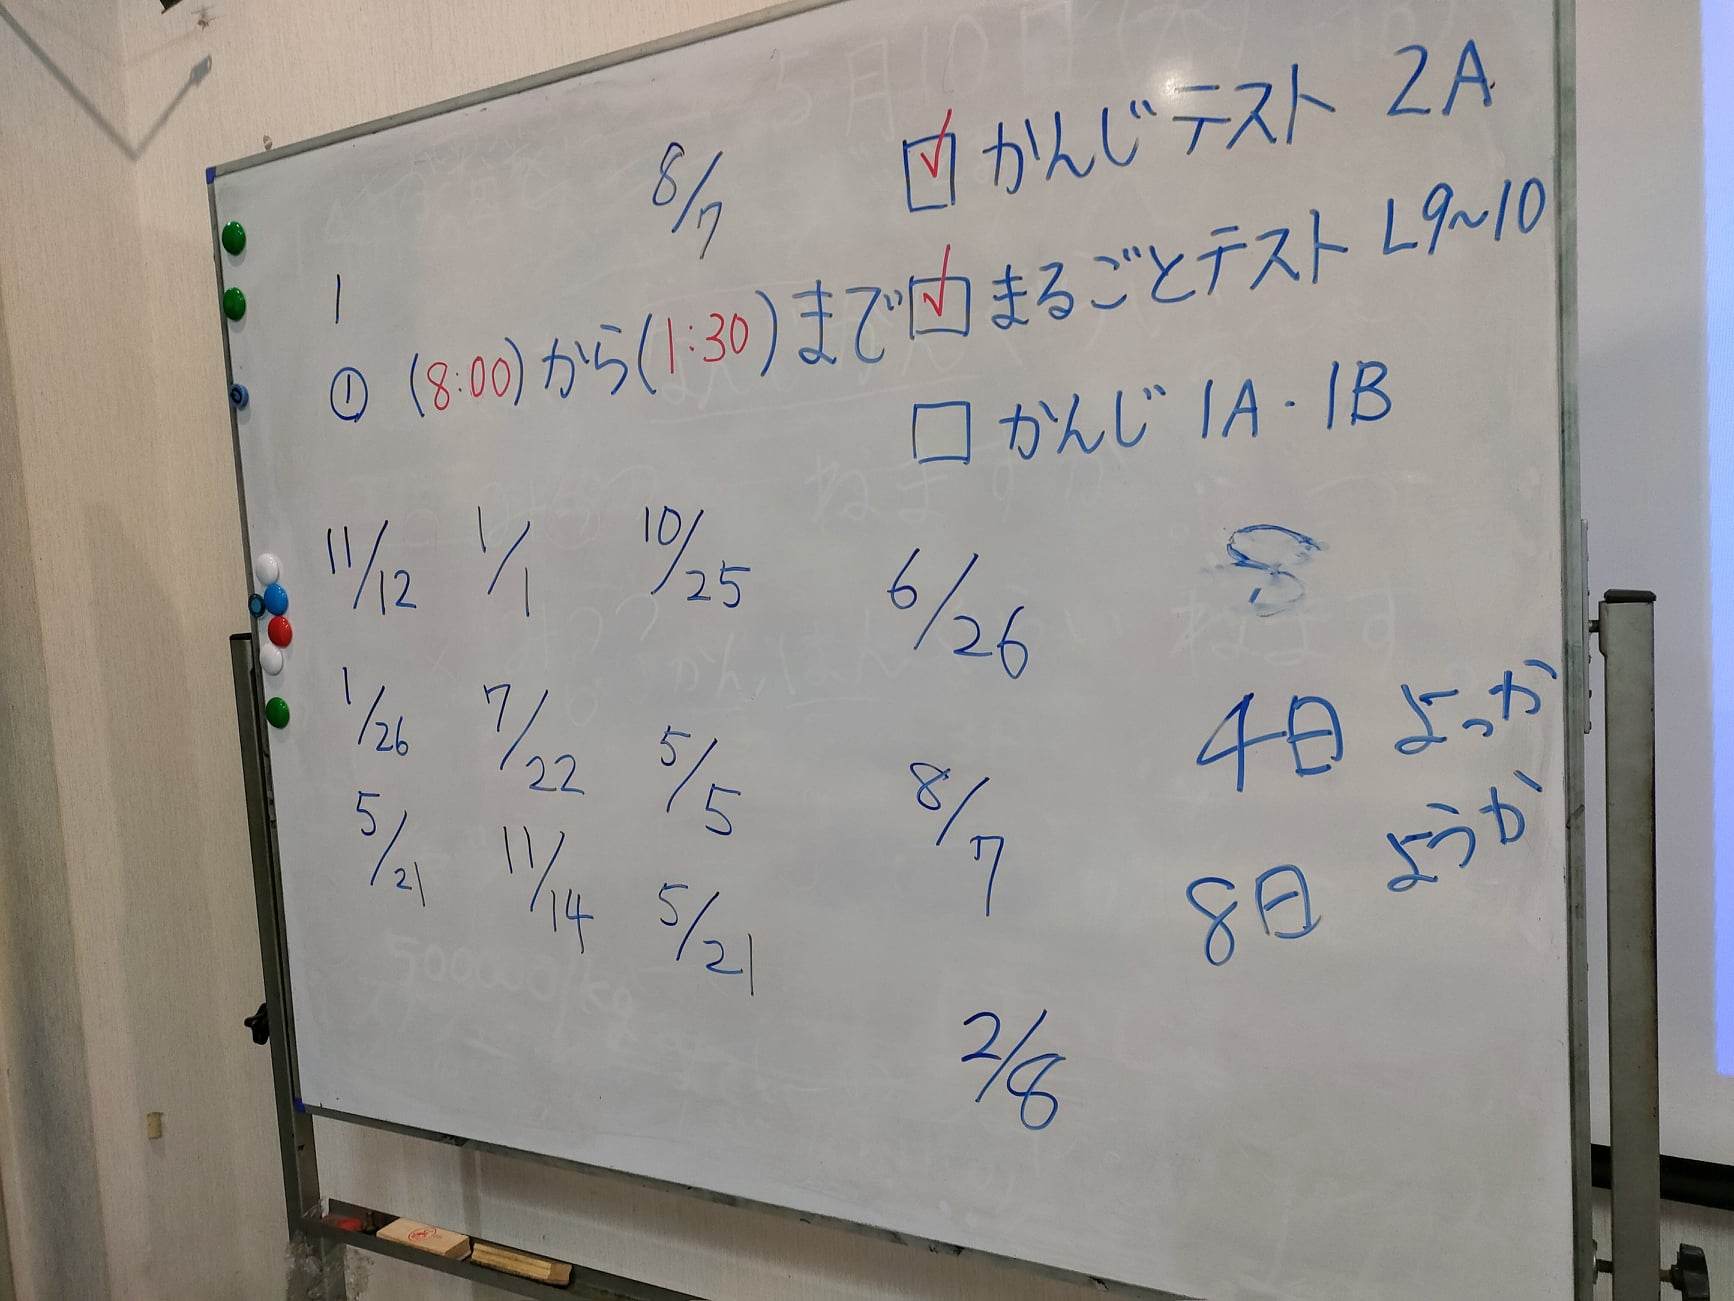 8/7
☑ かんじテスト 2A
1
① (8:00)から(1:30)まで
☑ まるごとテスト L9~10
☐ かんじ 1A・1B
11/12 1/1 10/25 6/26
1/26 7/22 5/5 8/7
5/21 11/14 5/21
2/8
4日 よっか
8日 ようか